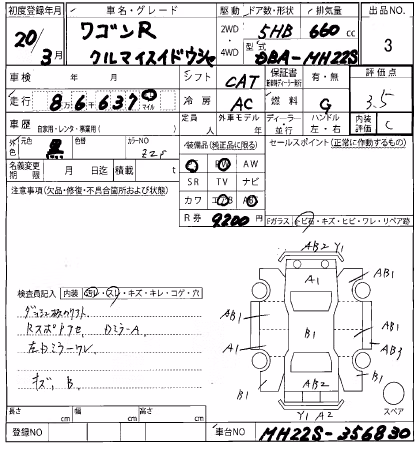 初度登録年月 車名・グレード 駆動 ドア数・形状 排気量 出品NO.
20/3月 ワゴンR クルマイスイドウシャ 2WD・4WD 5HB 660cc 3
型式 DBA-MH22S
車検 年 月 シフト CAT 保証書 有・無 評価点 3.5
走行 8万6千637 マイル 冷房 AC 燃料 G
車歴 自家用・レンタ・事業用( ) 定員 人 外車モデル 年 ディーラー・並行 ハンドル 左・右 内装評価 C
外色 元色 黒 色替 カラーNO
装備品(純正品に限る) セールスポイント(正常に動作するもの)
名義変更期限 月 日迄 積載 t
AW
SR TV ナビ
注意事項(欠品・修復・不具合箇所および状態)
カワ
R券 9200円 Fガラス トビ石・キズ・ヒビ・ワレ・リペア跡
AB2 Y1
A1 AB1
AB1
検査員記入 内装 汚レ・スレ・キズ・キレ・コゲ・穴
AB1 B1 AB1
DミラーA A1 AB3
左Dミラーワレ
キズ、B. B1 B1
AB2
Y1 A2 スペア
長さ cm 幅 cm 高さ cm
登録NO 車台NO MH22S-356830